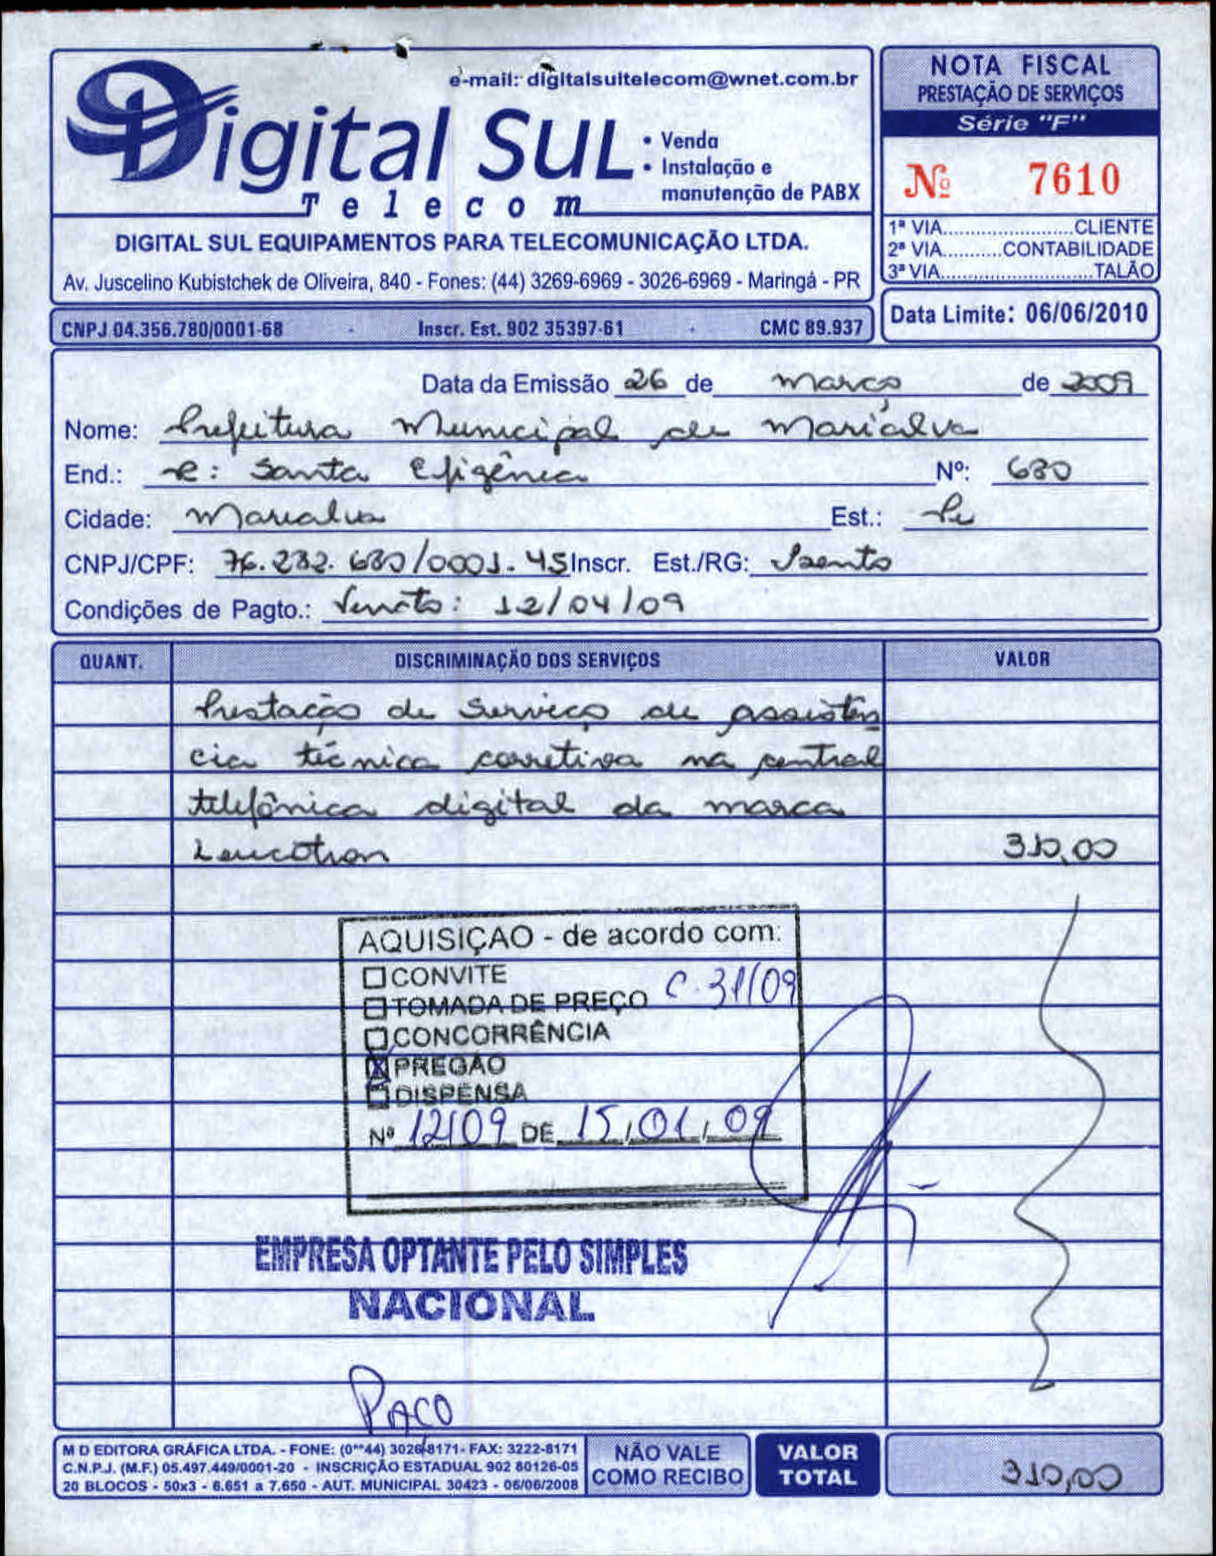 e-mail: digitalsultelecom@wnet.com.br
Digital Sul
Telecom
• Venda
• Instalação e
manutenção de PABX
DIGITAL SUL EQUIPAMENTOS PARA TELECOMUNICAÇÃO LTDA.
Av. Juscelino Kubistchek de Oliveira, 840 - Fones: (44) 3269-6969 - 3026-6969 - Maringá - PR
CNPJ 04.356.780/0001-68 - Inscr. Est. 902 35397-61 - CMC 89.937
NOTA FISCAL
PRESTAÇÃO DE SERVIÇOS
Série "F"
Nº 7610
1ª VIA......................CLIENTE
2ª VIA..........CONTABILIDADE
3ª VIA..........................TALÃO
Data Limite: 06/06/2010
Data da Emissão 26 de março de 2009
Nome: Prefeitura Municipal de Marialva
End.: R: Santa Efigênia Nº: 680
Cidade: Marialva Est.: Pr
CNPJ/CPF: 76.282.680/0001-45 Inscr. Est./RG: Isento
Condições de Pagto.: Vencto: 12/04/09
QUANT. DISCRIMINAÇÃO DOS SERVIÇOS VALOR
Prestação de serviço de assistên
cia técnica corretiva na central
telefônica digital da marca
Leucotron 310,00
AQUISIÇAO - de acordo com:
CONVITE
TOMADA DE PREÇO C.31/09
CONCORRÊNCIA
X PREGÃO
DISPENSA
Nº 12/09 DE 15/01/09
EMPRESA OPTANTE PELO SIMPLES
NACIONAL
PAÇO
M D EDITORA GRÁFICA LTDA. - FONE: (0**44) 3026-8171- FAX: 3222-8171
C.N.P.J. (M.F.) 05.497.449/0001-20 - INSCRIÇÃO ESTADUAL 902 80126-05
20 BLOCOS - 50x3 - 6.651 a 7.650 - AUT. MUNICIPAL 30423 - 06/06/2008
NÃO VALE
COMO RECIBO
VALOR
TOTAL
310,00